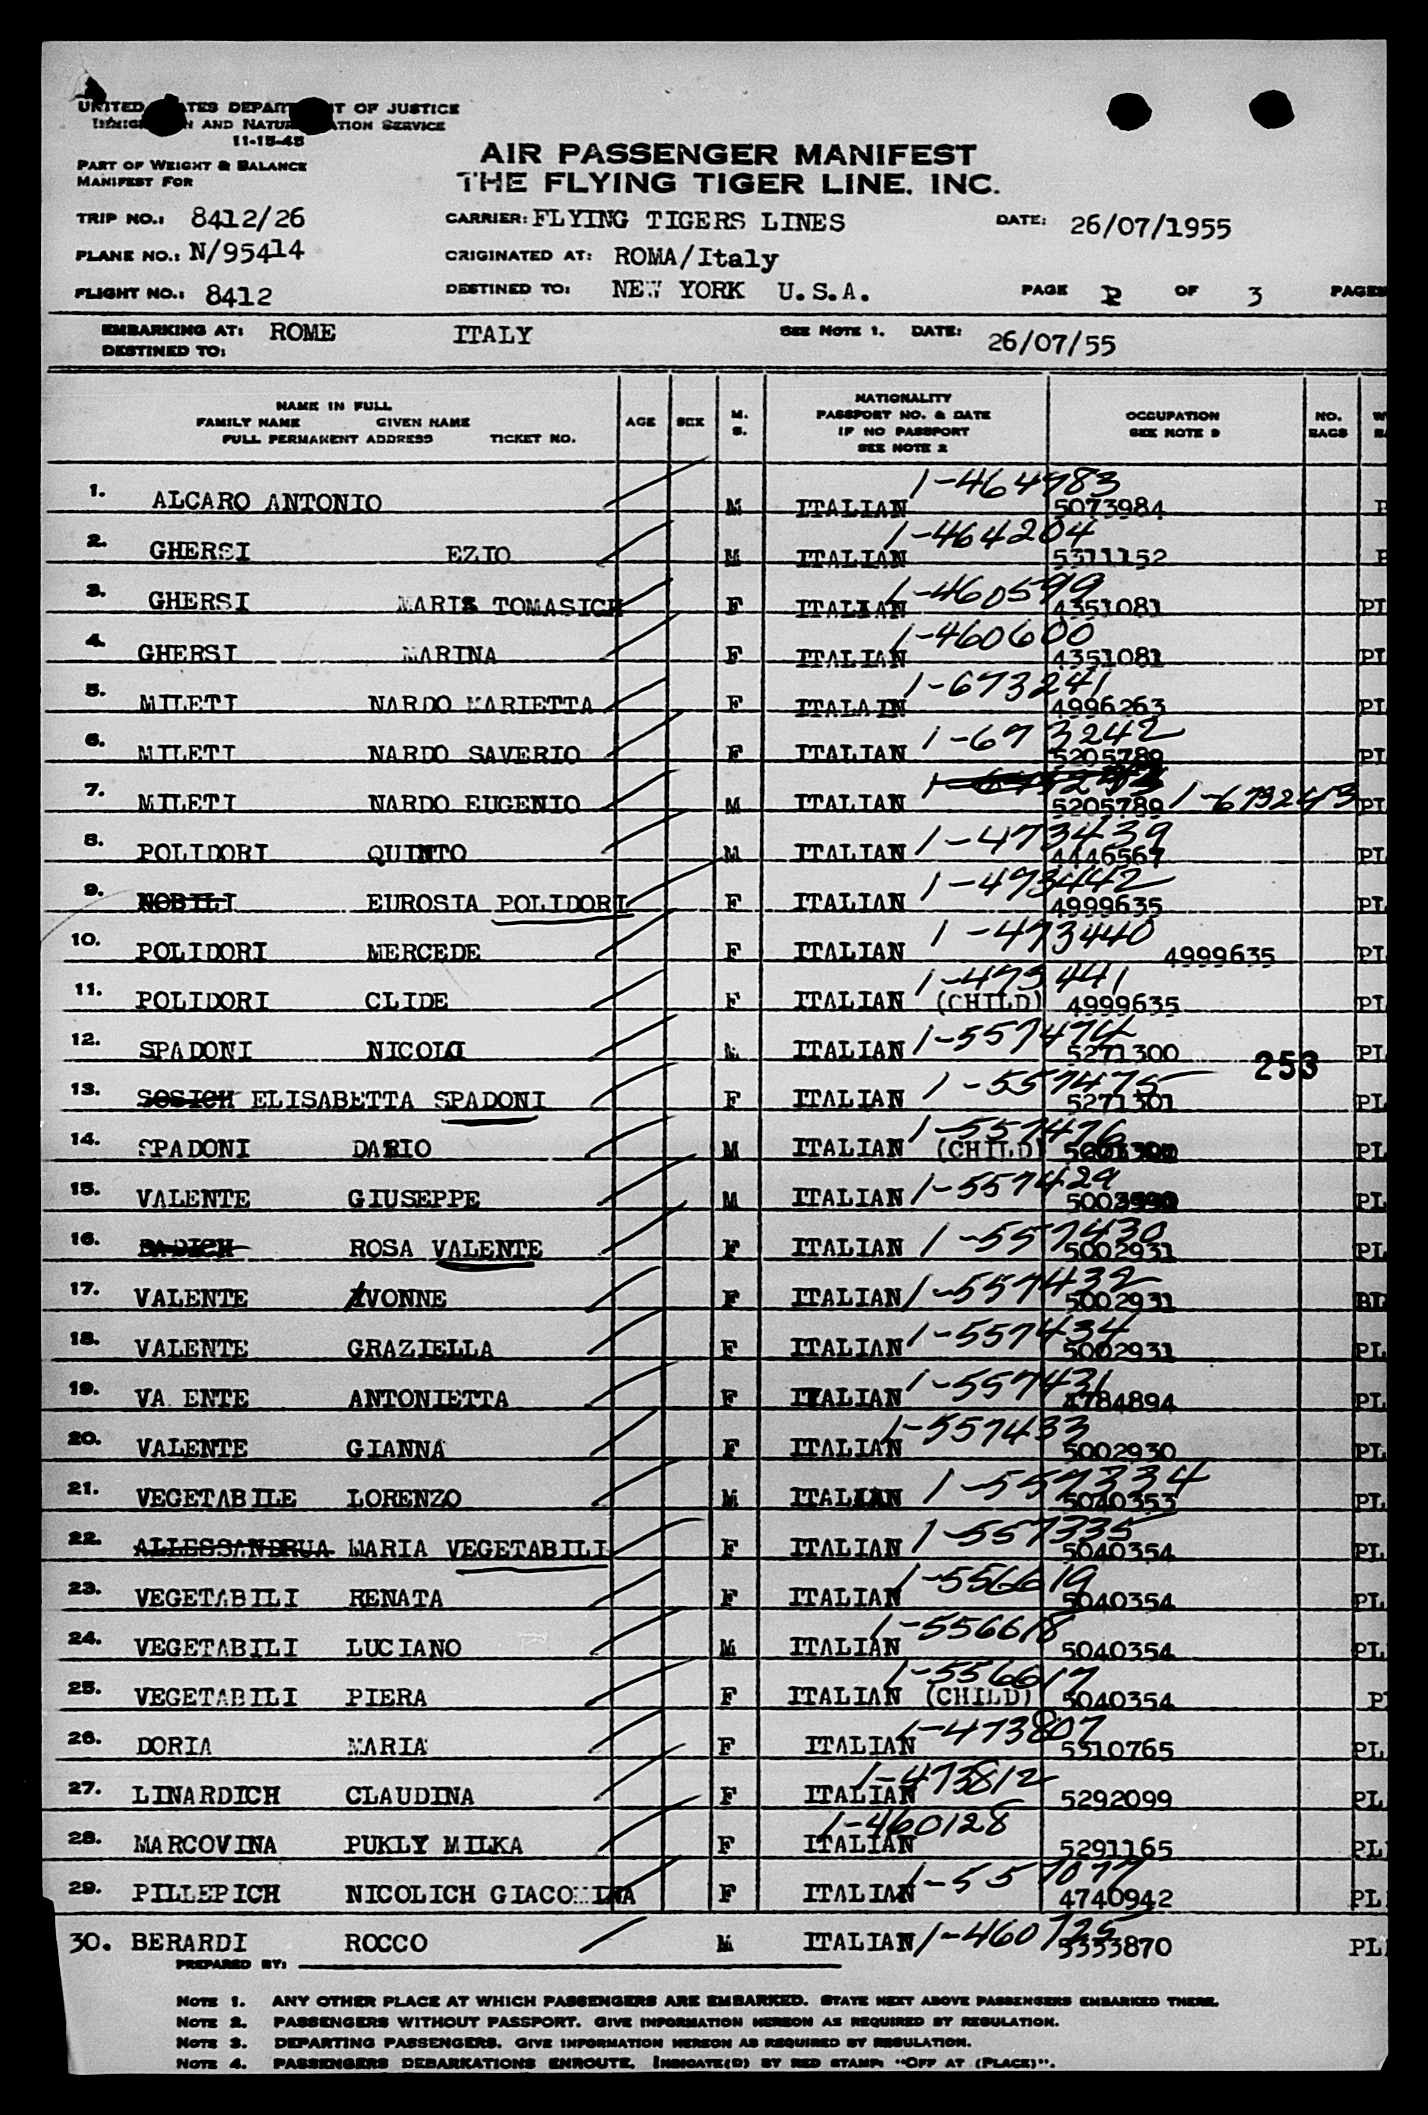 UNITED STATES DEPARTMENT OF JUSTICE
IMMIGRATION AND NATURALIZATION SERVICE
11-15-48
PART OF WEIGHT & BALANCE
MANIFEST FOR
AIR PASSENGER MANIFEST
THE FLYING TIGER LINE. INC.
TRIP NO.: 8412/26 CARRIER: FLYING TIGERS LINES DATE: 26/07/1955
PLANE NO.: N/95414 ORIGINATED AT: ROMA/Italy
FLIGHT NO.: 8412 DESTINED TO: NEW YORK U.S.A. PAGE 2 OF 3 PAGES
EMBARKING AT: ROME ITALY SEE NOTE 1. DATE: 26/07/55
DESTINED TO:
NAME IN FULL
FAMILY NAME GIVEN NAME
FULL PERMANENT ADDRESS TICKET NO.
AGE SEX M. S.
NATIONALITY
PASSPORT NO. & DATE
IF NO PASSPORT
SEE NOTE 2
OCCUPATION
SEE NOTE 9
NO.
BAGS
1. ALCARO ANTONIO M ITALIAN 1-464783 5073984
2. GHERSI EZIO M ITALIAN 1-464204 5311152
3. GHERSI MARIA TOMASICH F ITALIAN 1-460599 4351081 PL
4. GHERSI MARINA F ITALIAN 1-460600 4351081 PL
5. MILETI NARDO MARIETTA F ITALAIN 1-673241 4996263 PL
6. MILETI NARDO SAVERIO F ITALIAN 1-673242 5205789 PL
7. MILETI NARDO EUGENIO M ITALIAN 5205789 1-673243 PL
8. POLIDORI QUINTO M ITALIAN 1-473439 4446567 PL
9. NOBILI EUROSIA POLIDORI F ITALIAN 1-473442 4999635 PL
10. POLIDORI MERCEDE F ITALIAN 1-473440 4999635 PL
11. POLIDORI CLIDE F ITALIAN (CHILD) 1-473441 4999635 PL
12. SPADONI NICOLO M ITALIAN 1-557474 5271300 PL
253
13. SOSICH ELISABETTA SPADONI F ITALIAN 1-557475 5271301 PL
14. SPADONI DARIO M ITALIAN (CHILD) 1-557476 PL
15. VALENTE GIUSEPPE M ITALIAN 1-557429 PL
16. RADICH ROSA VALENTE F ITALIAN 1-557430 5002931 PL
17. VALENTE IVONNE F ITALIAN 1-557432 5002931 PL
18. VALENTE GRAZIELLA F ITALIAN 1-557434 5002931 PL
19. VA ENTE ANTONIETTA F ITALIAN 1-557431 4784894 PL
20. VALENTE GIANNA F ITALIAN 1-557433 5002930 PL
21. VEGETABILE LORENZO M ITALIAN 1-557334 5040353 PL
22. ALLESSANDRUA MARIA VEGETABILI F ITALIAN 1-557335 5040354 PL
23. VEGETABILI RENATA F ITALIAN 1-556619 5040354 PL
24. VEGETABILI LUCIANO M ITALIAN 1-556618 5040354 PL
25. VEGETABILI PIERA F ITALIAN (CHILD) 1-556617 5040354 P
26. DORIA MARIA F ITALIAN 1-473807 5310765 PL
27. LINARDICH CLAUDINA F ITALIAN 1-473812 5292099 PL
28. MARCOVINA PUKLY MILKA F ITALIAN 1-460128 5291165 PL
29. PILLEPICH NICOLICH GIACOMINA F ITALIAN 1-557077 4740942 PL
30. BERARDI ROCCO M ITALIAN 1-460725 5333870 PL
PREPARED BY:
NOTE 1. ANY OTHER PLACE AT WHICH PASSENGERS ARE EMBARKED. STATE NEXT ABOVE PASSENGERS EMBARKED THERE.
NOTE 2. PASSENGERS WITHOUT PASSPORT. GIVE INFORMATION HEREON AS REQUIRED BY REGULATION.
NOTE 3. DEPARTING PASSENGERS. GIVE INFORMATION HEREON AS REQUIRED BY REGULATION.
NOTE 4. PASSENGERS DEBARKATIONS ENROUTE. INDICATE(D) BY RED STAMP: "OFF AT (PLACE)".